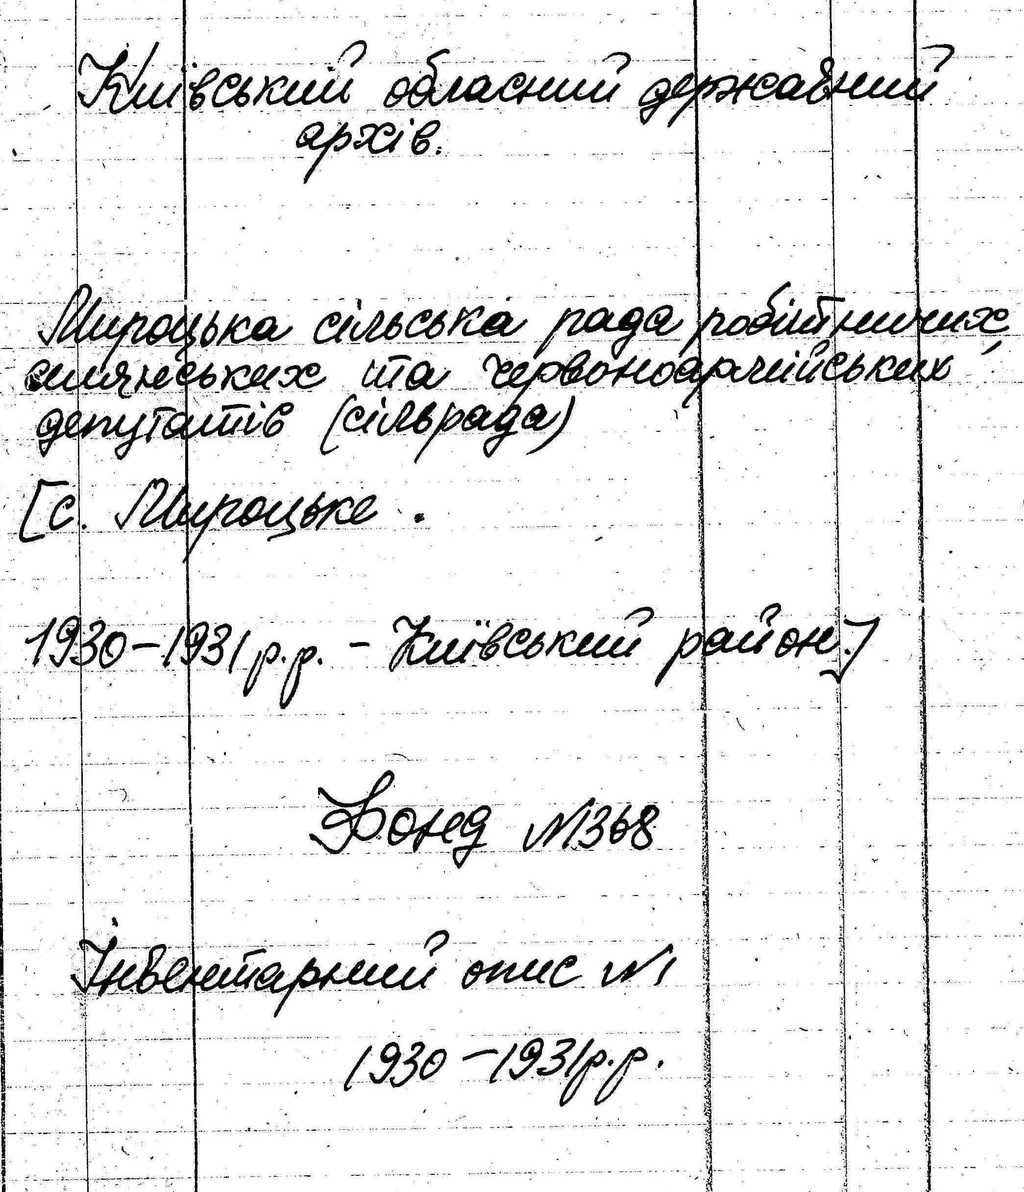 Київський обласний державний
архів.
Мироцька сільська рада робітничих,
селянських та червоноармійських
депутатів (сільрада)
[с. Мироцьке .
1930-1931 р.р. - Київський район.]
Фонд №1368
Інвентарний опис №1
1930-1931 р.р.